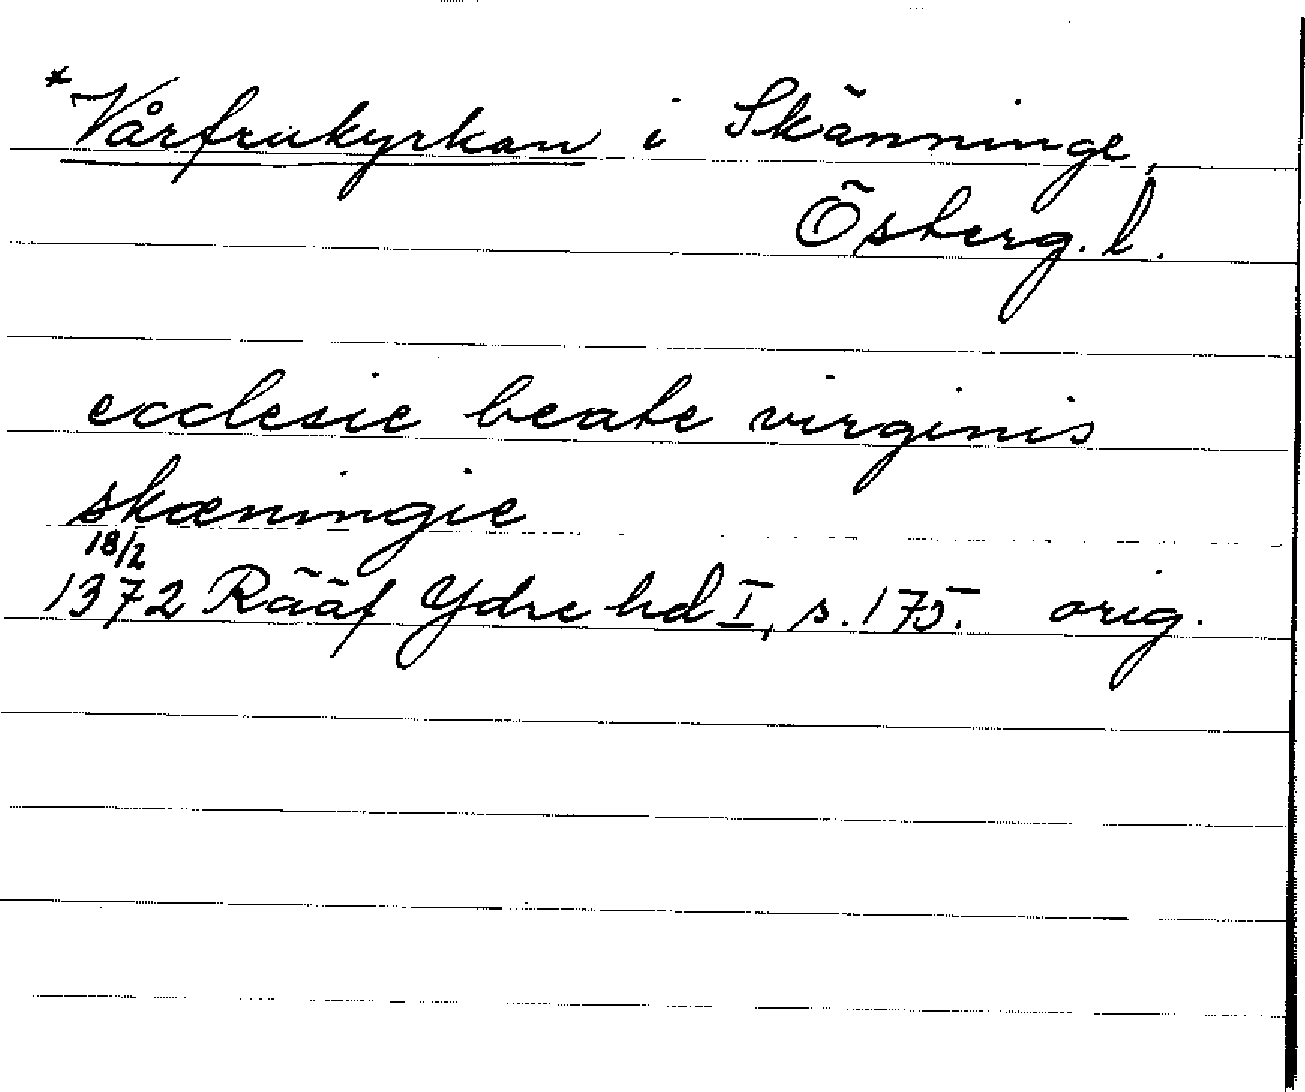 *Vårfrukyrkan i Skänninge,
Österg. l.
ecclesie beate virginis
skæningie
18/2
1372 Rääf Ydre hd I, s. 175. orig.